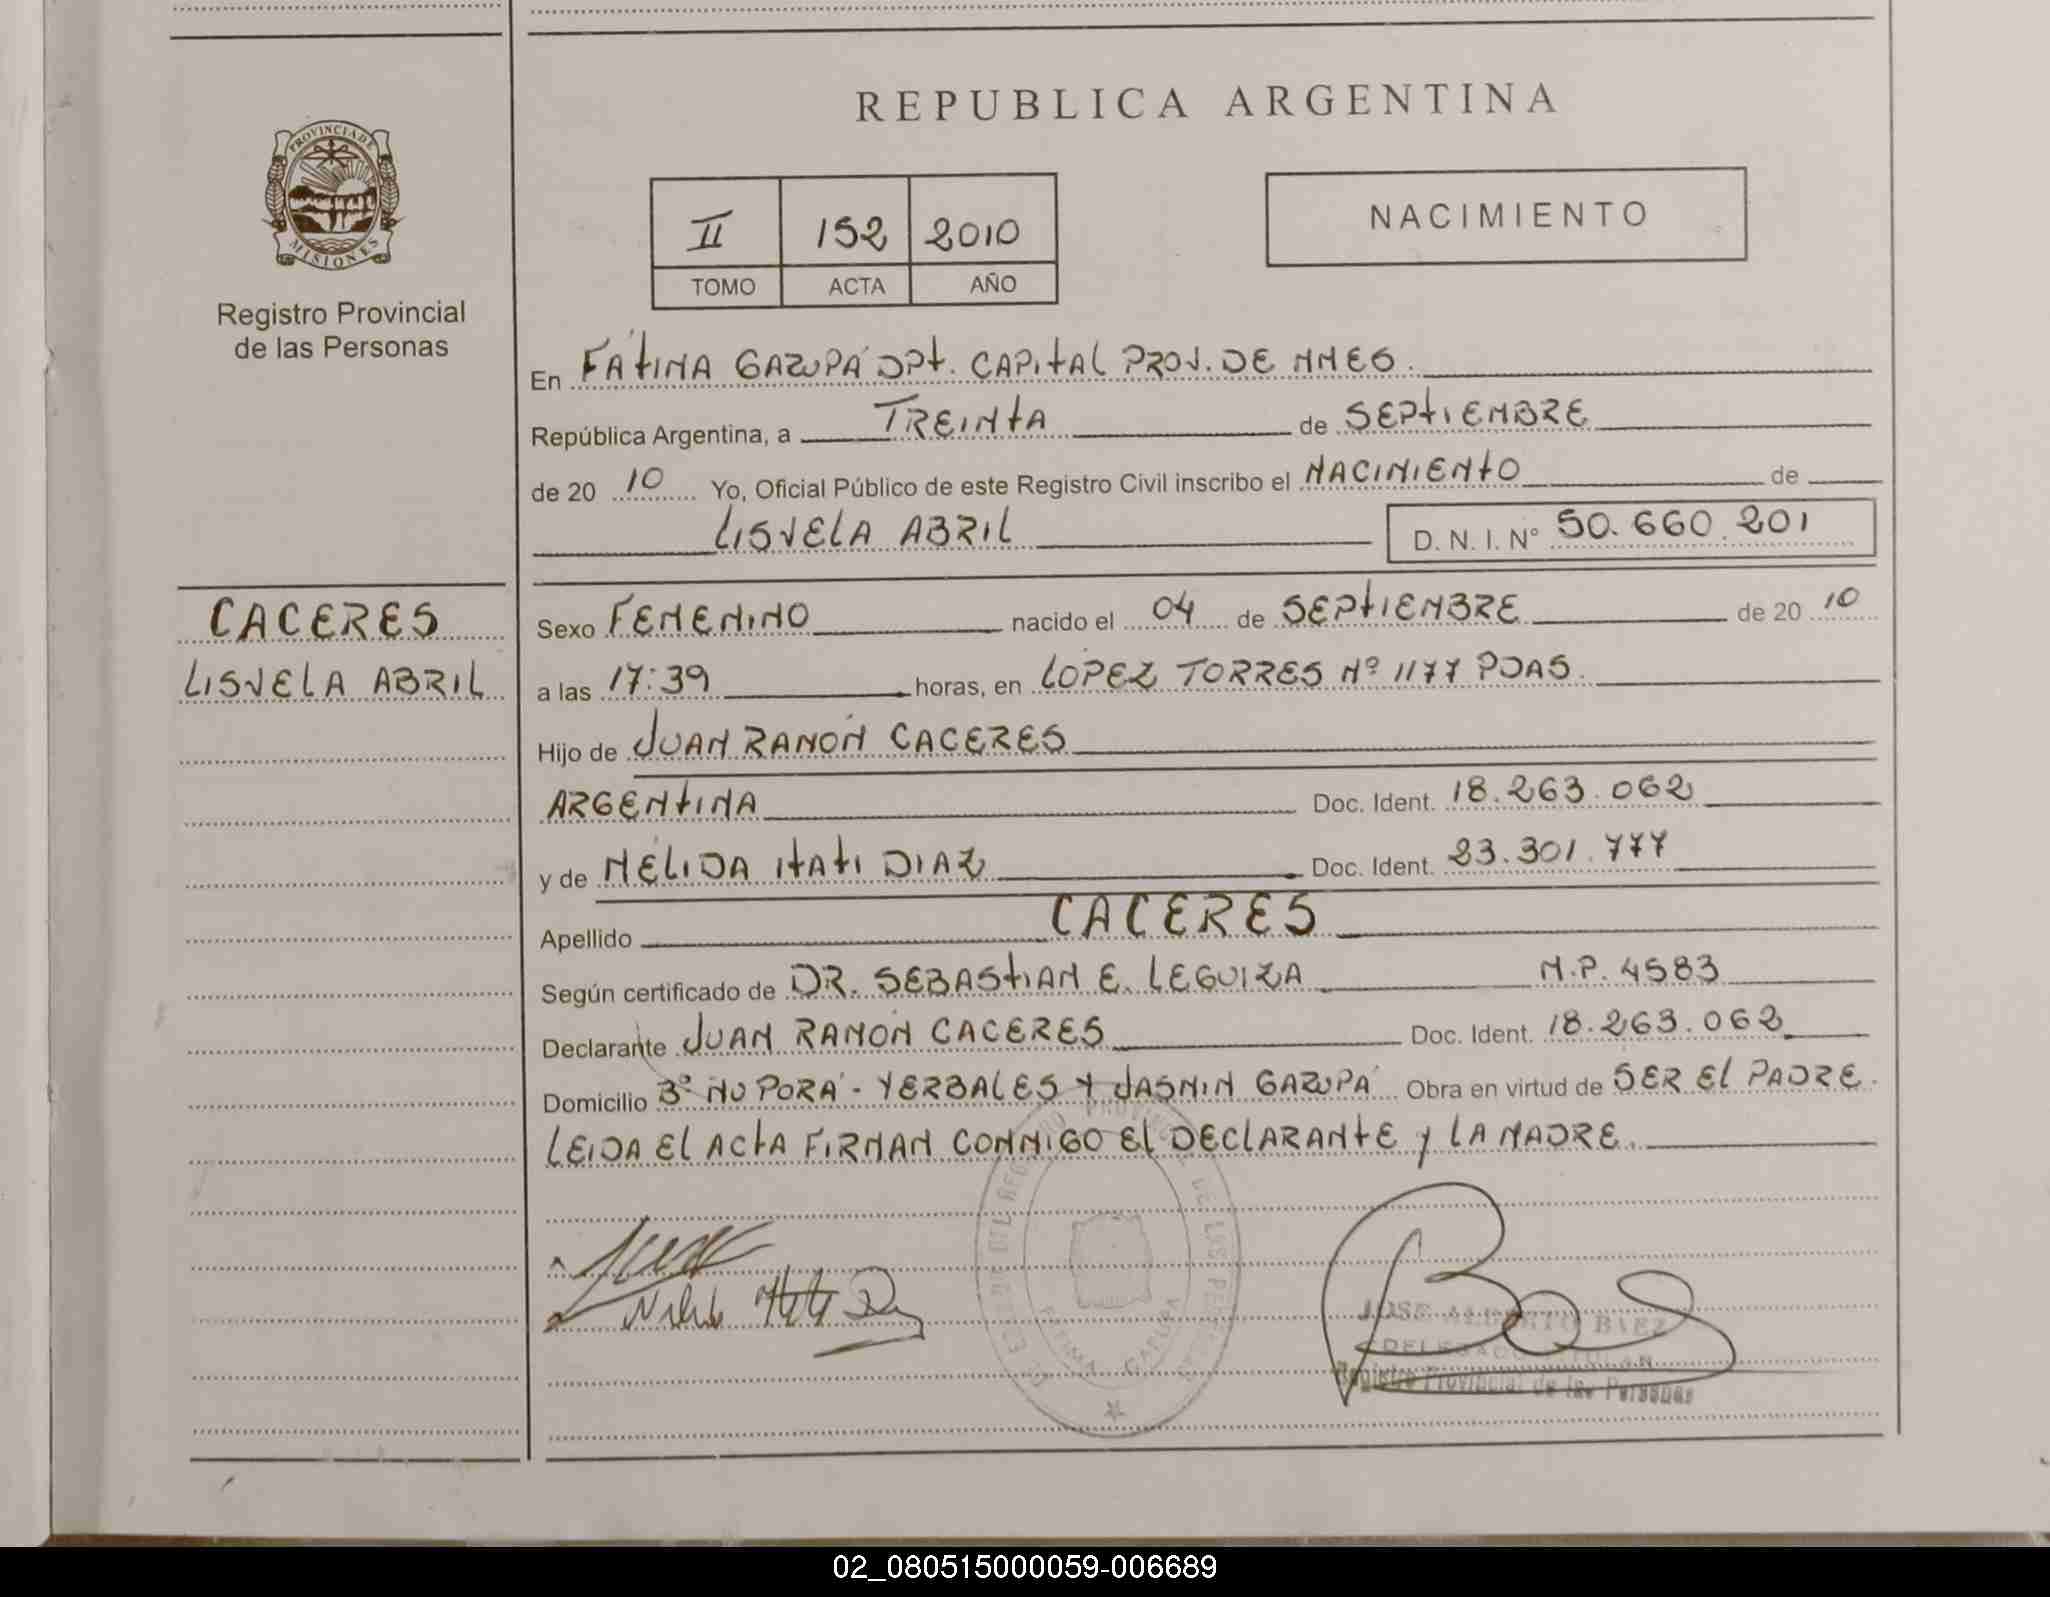 REPUBLICA ARGENTINA
PROVINCIA DE MISIONES
Registro Provincial
de las Personas
II 152 2010
TOMO ACTA AÑO
NACIMIENTO
En FÁTIMA GARUPÁ DPT. CAPITAL PROV. DE MNES.
República Argentina, a TREINTA de SEPTIEMBRE
de 20 10 Yo, Oficial Público de este Registro Civil inscribo el NACIMIENTO de
LISVELA ABRIL D. N. I. N° 50.660.201
CACERES
LISVELA ABRIL
Sexo FEMENINO nacido el 04 de SEPTIEMBRE de 20 10
a las 17:39 horas, en LOPEZ TORRES Nº 1177 PDAS.
Hijo de JUAN RAMÓN CACERES
ARGENTINA Doc. Ident. 18.263.062
y de NÉLIDA ITATI DIAZ Doc. Ident. 23.301.777
Apellido CACERES
Según certificado de DR. SEBASTIAN E. LEGUIZA M.P. 4583
Declarante JUAN RAMÓN CACERES Doc. Ident. 18.263.062
Domicilio Bº ÑU PORÁ - YERBALES Y JASMIN GARUPÁ Obra en virtud de SER EL PADRE.
LEIDA EL ACTA FIRMAN CONMIGO EL DECLARANTE Y LA MADRE.
JOSE ALBERTO BAEZ
Registro Provincial de las Personas
FATIMA GARUPA
02_080515000059-006689